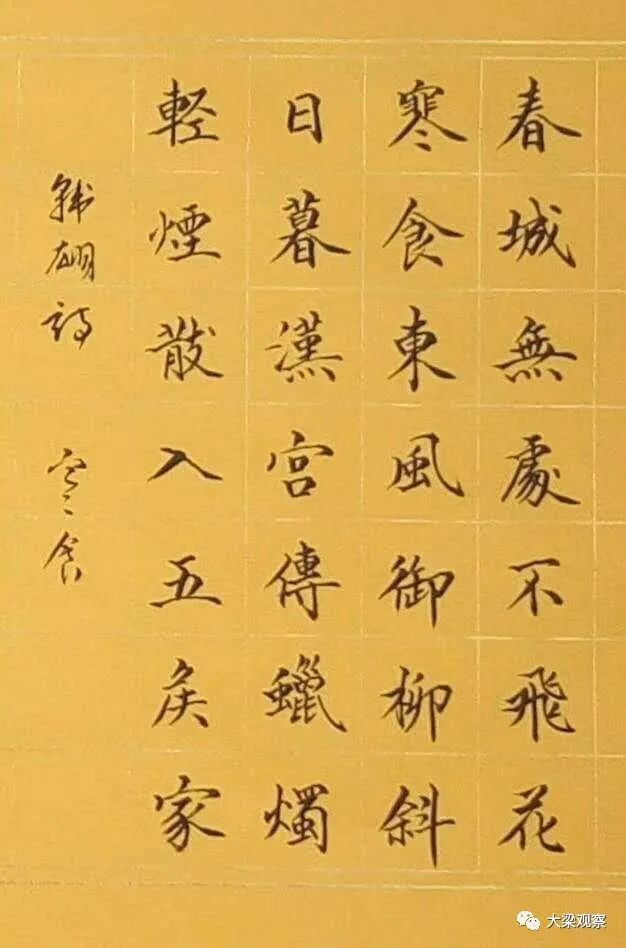 春城無處不飛花
寒食東風御柳斜
日暮漢宮傳蠟燭
輕煙散入五侯家
韓翃詩 寒食
大梁观察